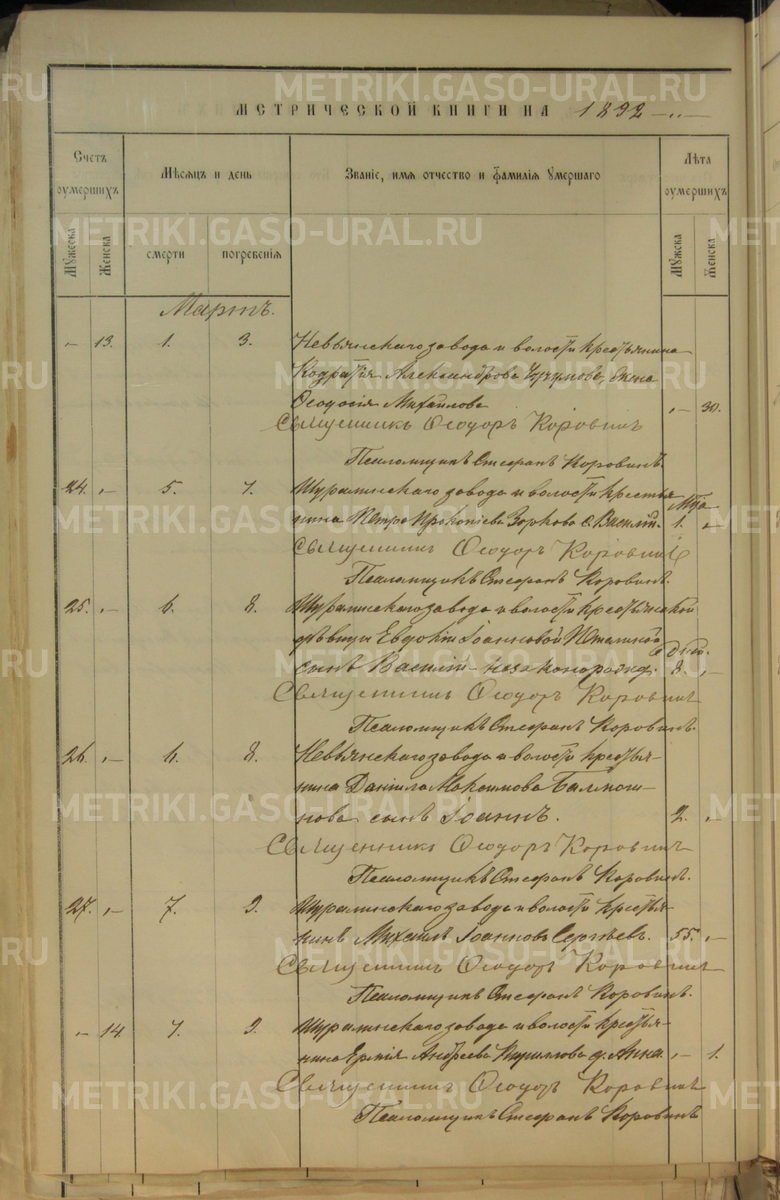 МЕТРИЧЕСКОЙ КНИГИ НА 1892
Счетъ умершихъ
Мѣсяцъ и день
Званіе, имя отчество и фамилія умершаго
Лѣта умершихъ
Мужеска
Женска
смерти
погребенія
Мужеска
Женска
Мартъ.
13. 1. 3. Невьянскаго завода и волости крестьянина
Александрова жена
Ѳеодосія Михайлова 30.
Священникъ Ѳеодоръ Коровинъ
Псаломщикъ Стефанъ Коровинъ.
24. 5. 7. Шуралинскаго завода и волости кресть
янина Петра Прокопіева Зоркова с. Василій. 1.
Священникъ Ѳеодоръ Коровинъ
Псаломщикъ Стефанъ Коровинъ.
25. 6. 8. Шуралинскаго завода и волости крестьянской
дѣвицы Евдокіи Іоанновой
сынъ Василій – незаконорожд. 8.
Священникъ Ѳеодоръ Коровинъ
Псаломщикъ Стефанъ Коровинъ.
26. 6. 8. Невьянскаго завода и волости крестья-
нина Даніила Максимова Балмаш-
нова сынъ Іоаннъ. 2.
Священникъ Ѳеодоръ Коровинъ
Псаломщикъ Стефанъ Коровинъ.
27. 7. 9. Шуралинскаго завода и волости крестья-
нинъ Михаилъ Іоанновъ Сергѣевъ. 55.
Священникъ Ѳеодоръ Коровинъ
Псаломщикъ Стефанъ Коровинъ.
14. 7. 9. Шуралинскаго завода и волости крестья-
нина Андреева Кириллова д. Анна. 1.
Священникъ Ѳеодоръ Коровинъ
Псаломщикъ Стефанъ Коровинъ
METRIKI.GASO-URAL.RU